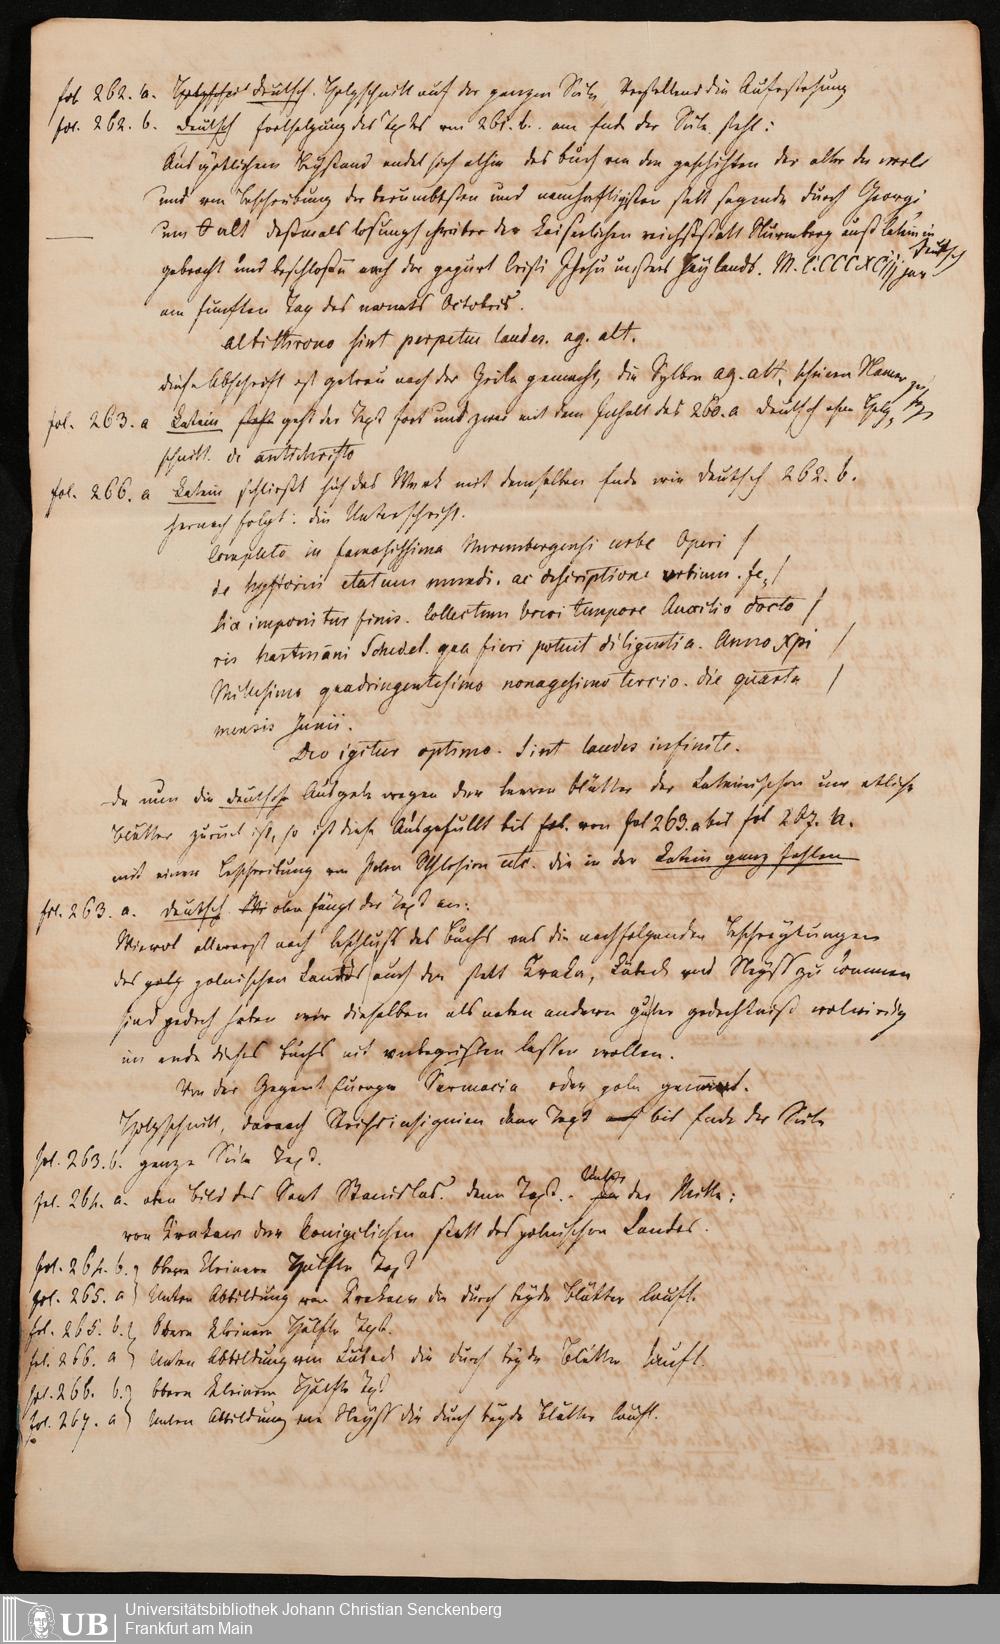 fol 262. a. Holzschnitt deutsch. Holzschnitt auf der ganzen Seite, vorstellend die Auferstehung
fol. 262. b. deutsch fortsetzung des Textes von 261. b. am Ende der Seite steht:
Aus götlichem beystand endet sich alhie das buch von den geschichten der alter der werlt
und von beschreibung der berümbtesten und namhaftigisten stett sagende durch Georgi
um alt deßmals losungschreiber der kaiserlichen reichßstatt Nürmberg auß latein in deutsch
gebracht und beschlossen nach der gepurt Cristi Jhesu unßers haylands. M. CCCCXCiij jar
am fünften Tag des monats Octobris.
altithrono sint perpetue laudes. ag. alt.
diese Abschrift ist getreu nach der Zeile gemacht, die Sylben ag. alt.
fol. 263. a Latein geht der Text fort und zwar mit dem Inhalt des 260. a deutsch ohne Holz-
schnitt. de antichristo
fol. 266. a Latein schließt sich das Werk mit demselben Ende wie deutsch 262. b.
hernach folgt: die Unterschrift.
Completo in famosissima Nurembergensi urbe Operi /
de hystoriis etatum mundi. ac descriptione urbium. fe, /
lix imponitur finis. Collectum brevi tempore Auxilio docto /
ris hartmāni Schedel. qua fieri potuit diligentia. Anno Xpi /
Millesimo quadringentesimo nonagesimo tercio. die quarto /
mensis Junii.
Deo igitur optimo. sint laudes infinite.
Da nun die deutsche Ausgabe wegen den leeren blätter der Lateinischen um etliche
blätter zurück ist, so ist diese Ausgefüllt bis fol. von fol 263. a bis fol 267. a.
mit einer beschreibung von Polen etc. die in der Latein ganz fehlen
fol. 263. a. deutsch. oben fängt der Text an:
Wiewol allererst nach beschluß des buchs uns die nachfolgenden beschreybungen
des polnischen Lands auch der stett Craka, Lübeck und Neyß zu kommen
sind yedoch haben wir dieselben als neben andern guter gedechtniß wolwirdig
im ende dieses buchs nit unbegriffen lassen wollen.
Von der Gegent Europe Sarmacia oder poln genannt.
Holzschnitt, darnach Reichsinsignien dann Text bis Ende der Seite
fol. 263. b. ganze Seite Text.
fol. 264. a. oben bild des Sant Stanislas. dann Text. Unter der Mitte:
von Krakaw der königlichen statt des polnischen Landes.
fol. 264. b. } obere kleinere Hälfte Text
fol. 265. a } unten Abbildung von Krakaw die durch beyde blätter lauft.
fol. 265. b. } obere kleinere Hälfte Text.
fol. 266. a } unten Abbildung von Lübeck die durch beyde blätter lauft.
fol. 266. b. } obere kleinere Hälfte Text
fol. 267. a } unten Abbildung von Neyß die durch beyde blätter lauft.
UB Universitätsbibliothek Johann Christian Senckenberg
Frankfurt am Main